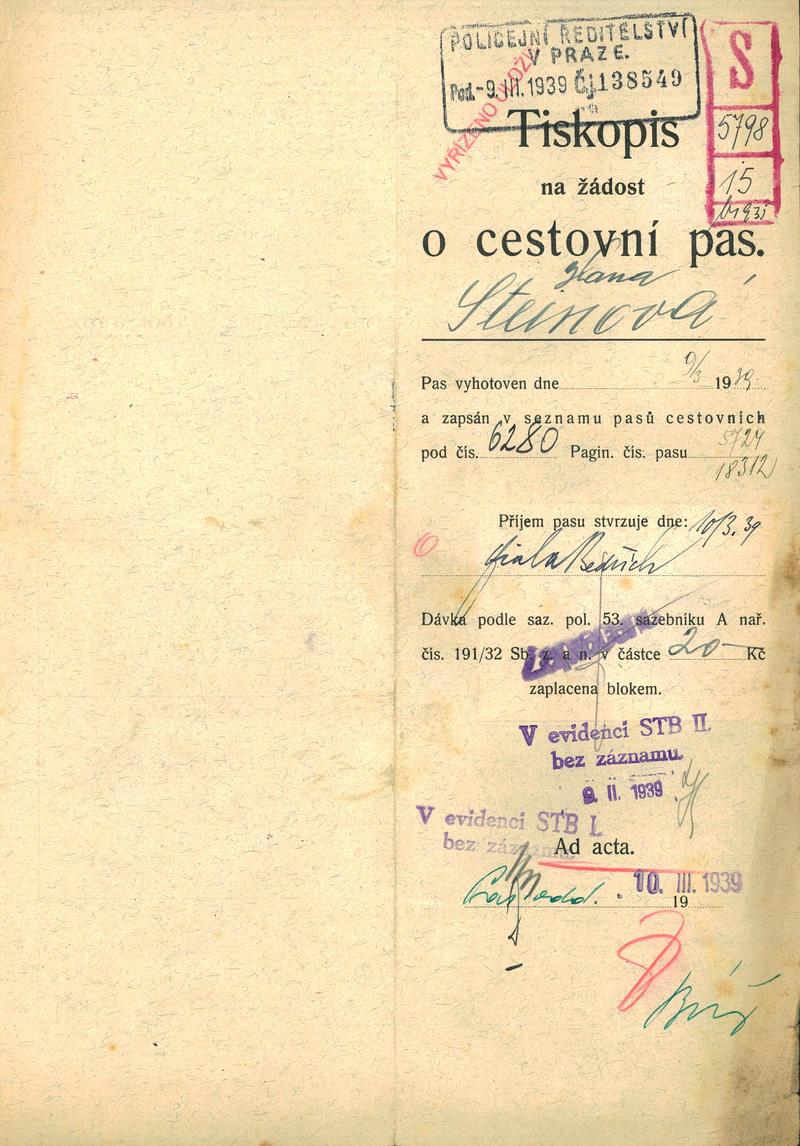 POLICEJNÍ ŘEDITELSTVÍ
V PRAZE.
Pod. -9. III. 1939 Čj. 138549
VYŘÍZENO ULOŽ
S
5798
15
Tiskopis
na žádost
o cestovní pas.
Hana
Steinová
Pas vyhotoven dne 9/3 1939.
a zapsán v seznamu pasů cestovních
pod čís. 6280 Pagin. čís. pasu 5724
18312
Příjem pasu stvrzuje dne: 10/3. 39
Fiala Bedřich
Dávka podle saz. pol. 53. sazebníku A nař.
čís. 191/32 Sb. z. a n. v částce 20 Kč
zaplacena blokem.
V evidenci STB II.
bez záznamu.
9. II. 1939
V evidenci STB I.
bez záznamu.
Ad acta.
10. III. 1939
19